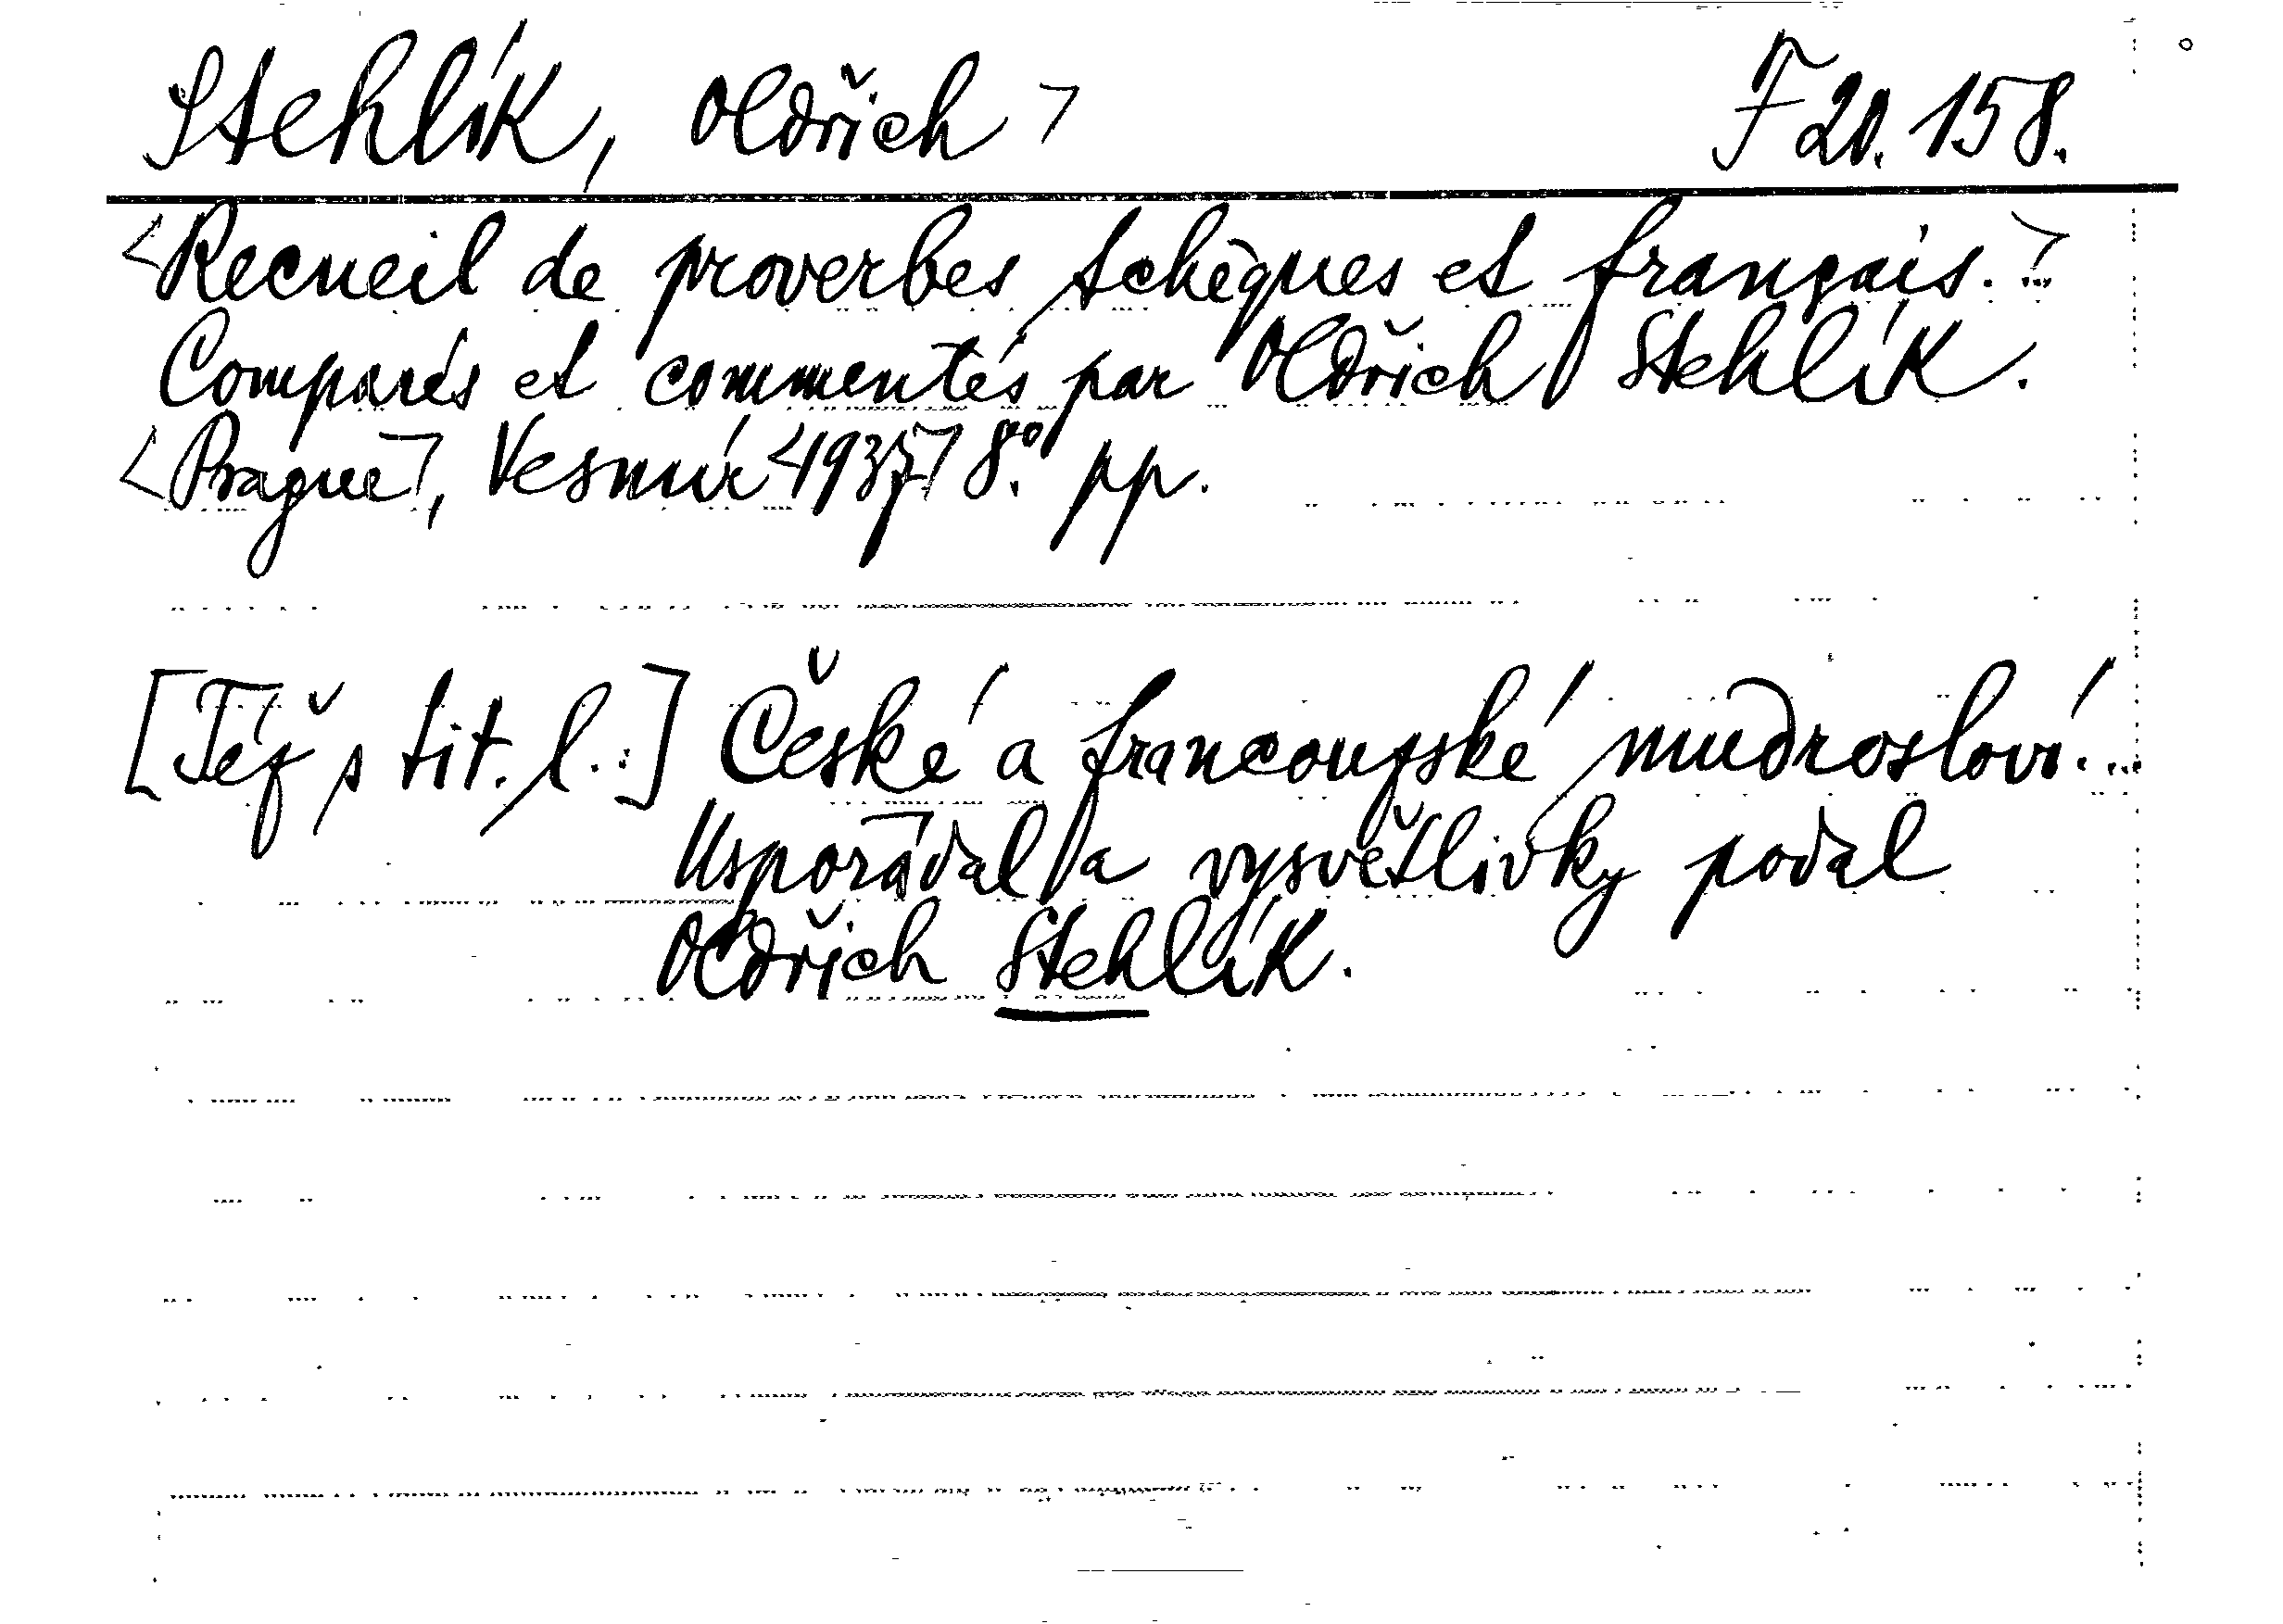 Stehlík, Oldřich > F 20.158.
<Recueil de proverbes tchèques et français.>...
Comparés et commentés par Oldřich Stehlík.
<Prague>, Vesmír <1937> 8.° pp.
[Též s tit. l.:] České a francouzské mudrosloví...
Uspořádal a vysvětlivky podal
Oldřich Stehlík.